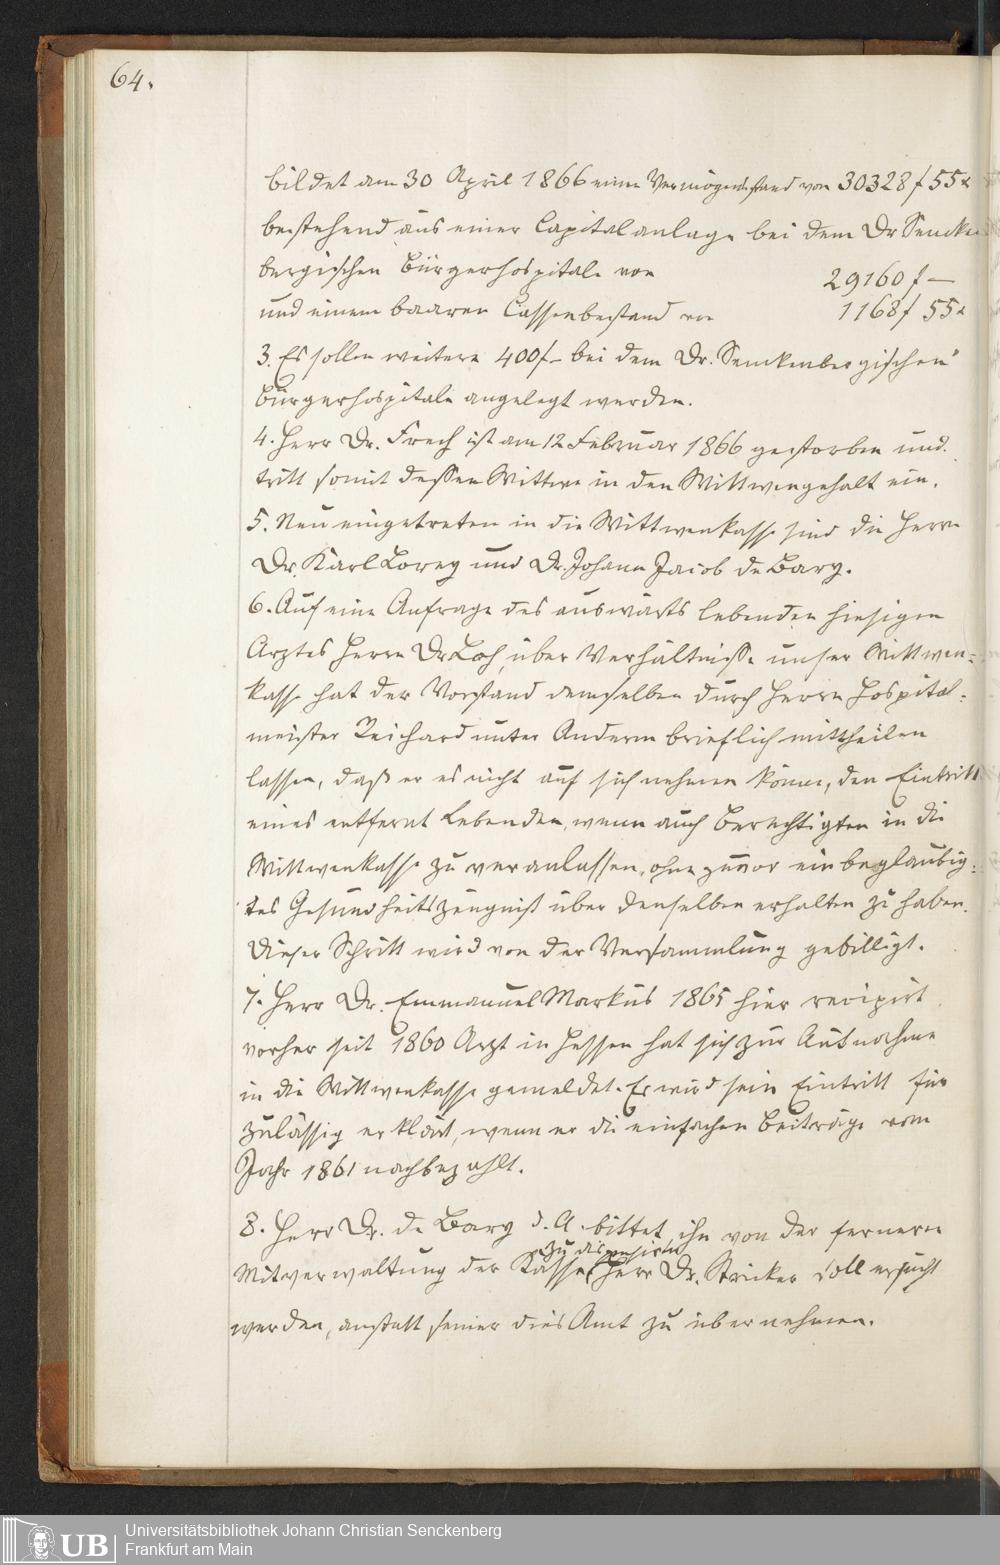 64.
bildet am 30 April 1866 einen Vermögensstand von 30328 f 55 x
bestehend aus einer Capitalanlage bei dem Dr Sencken
bergischen Bürgerhospitale von 29160 f —
und einem baaren Cassenbestand von 1168 f 55 x
3. Es sollen weitere 400 f — bei dem Dr. Senckenbergischen
Bürgerhospitale angelegt werden.
4. Herr Dr. Frech ist am 12 Februar 1866 gestorben und
tritt somit dessen Wittwe in den Wittwengehalt ein.
5. Neu eingetreten in die Wittwenkasse sind die Herrn
Dr. Karl Lorey und Dr. Johann Jacob de Bary.
6. Auf eine Anfrage des auswärts lebenden hiesigen
Arztes Herrn Dr Loh, über Verhältnisse unser Wittwen-
kasse hat der Vorstand demselben durch Herrn Hospital-
meister Reichard unter Anderm brieflich mittheilen
lassen, daß er es nicht auf sich nehmen könne, den Eintritt
eines entfernt Lebenden, wenn auch Berechtigten in die
Wittwenkasse zu veranlassen, ohne zuvor ein beglaubig-
tes Gesundheitszeugniß über denselben erhalten zu haben.
Dieser Schritt wird von der Versammlung gebilligt.
7. Herr Dr. Emmanuel Markus 1865 hier recipirt
vorher seit 1860 Arzt in Hessen hat sich zur Aufnahme
in die Wittwenkasse gemeldet. Es wird sein Eintritt für
zulässig erklärt, wenn er die einfachen Beiträge vom
Jahr 1861 nachbezahlt.
8. Herr Dr. de Bary d. A. bittet, ihn von der ferneren
Mitverwaltung der Kasse zu dispensiren. Herr Dr. Stricker soll ersucht
werden, anstatt seiner dies Amt zu übernehmen.
UB
Universitätsbibliothek Johann Christian Senckenberg
Frankfurt am Main